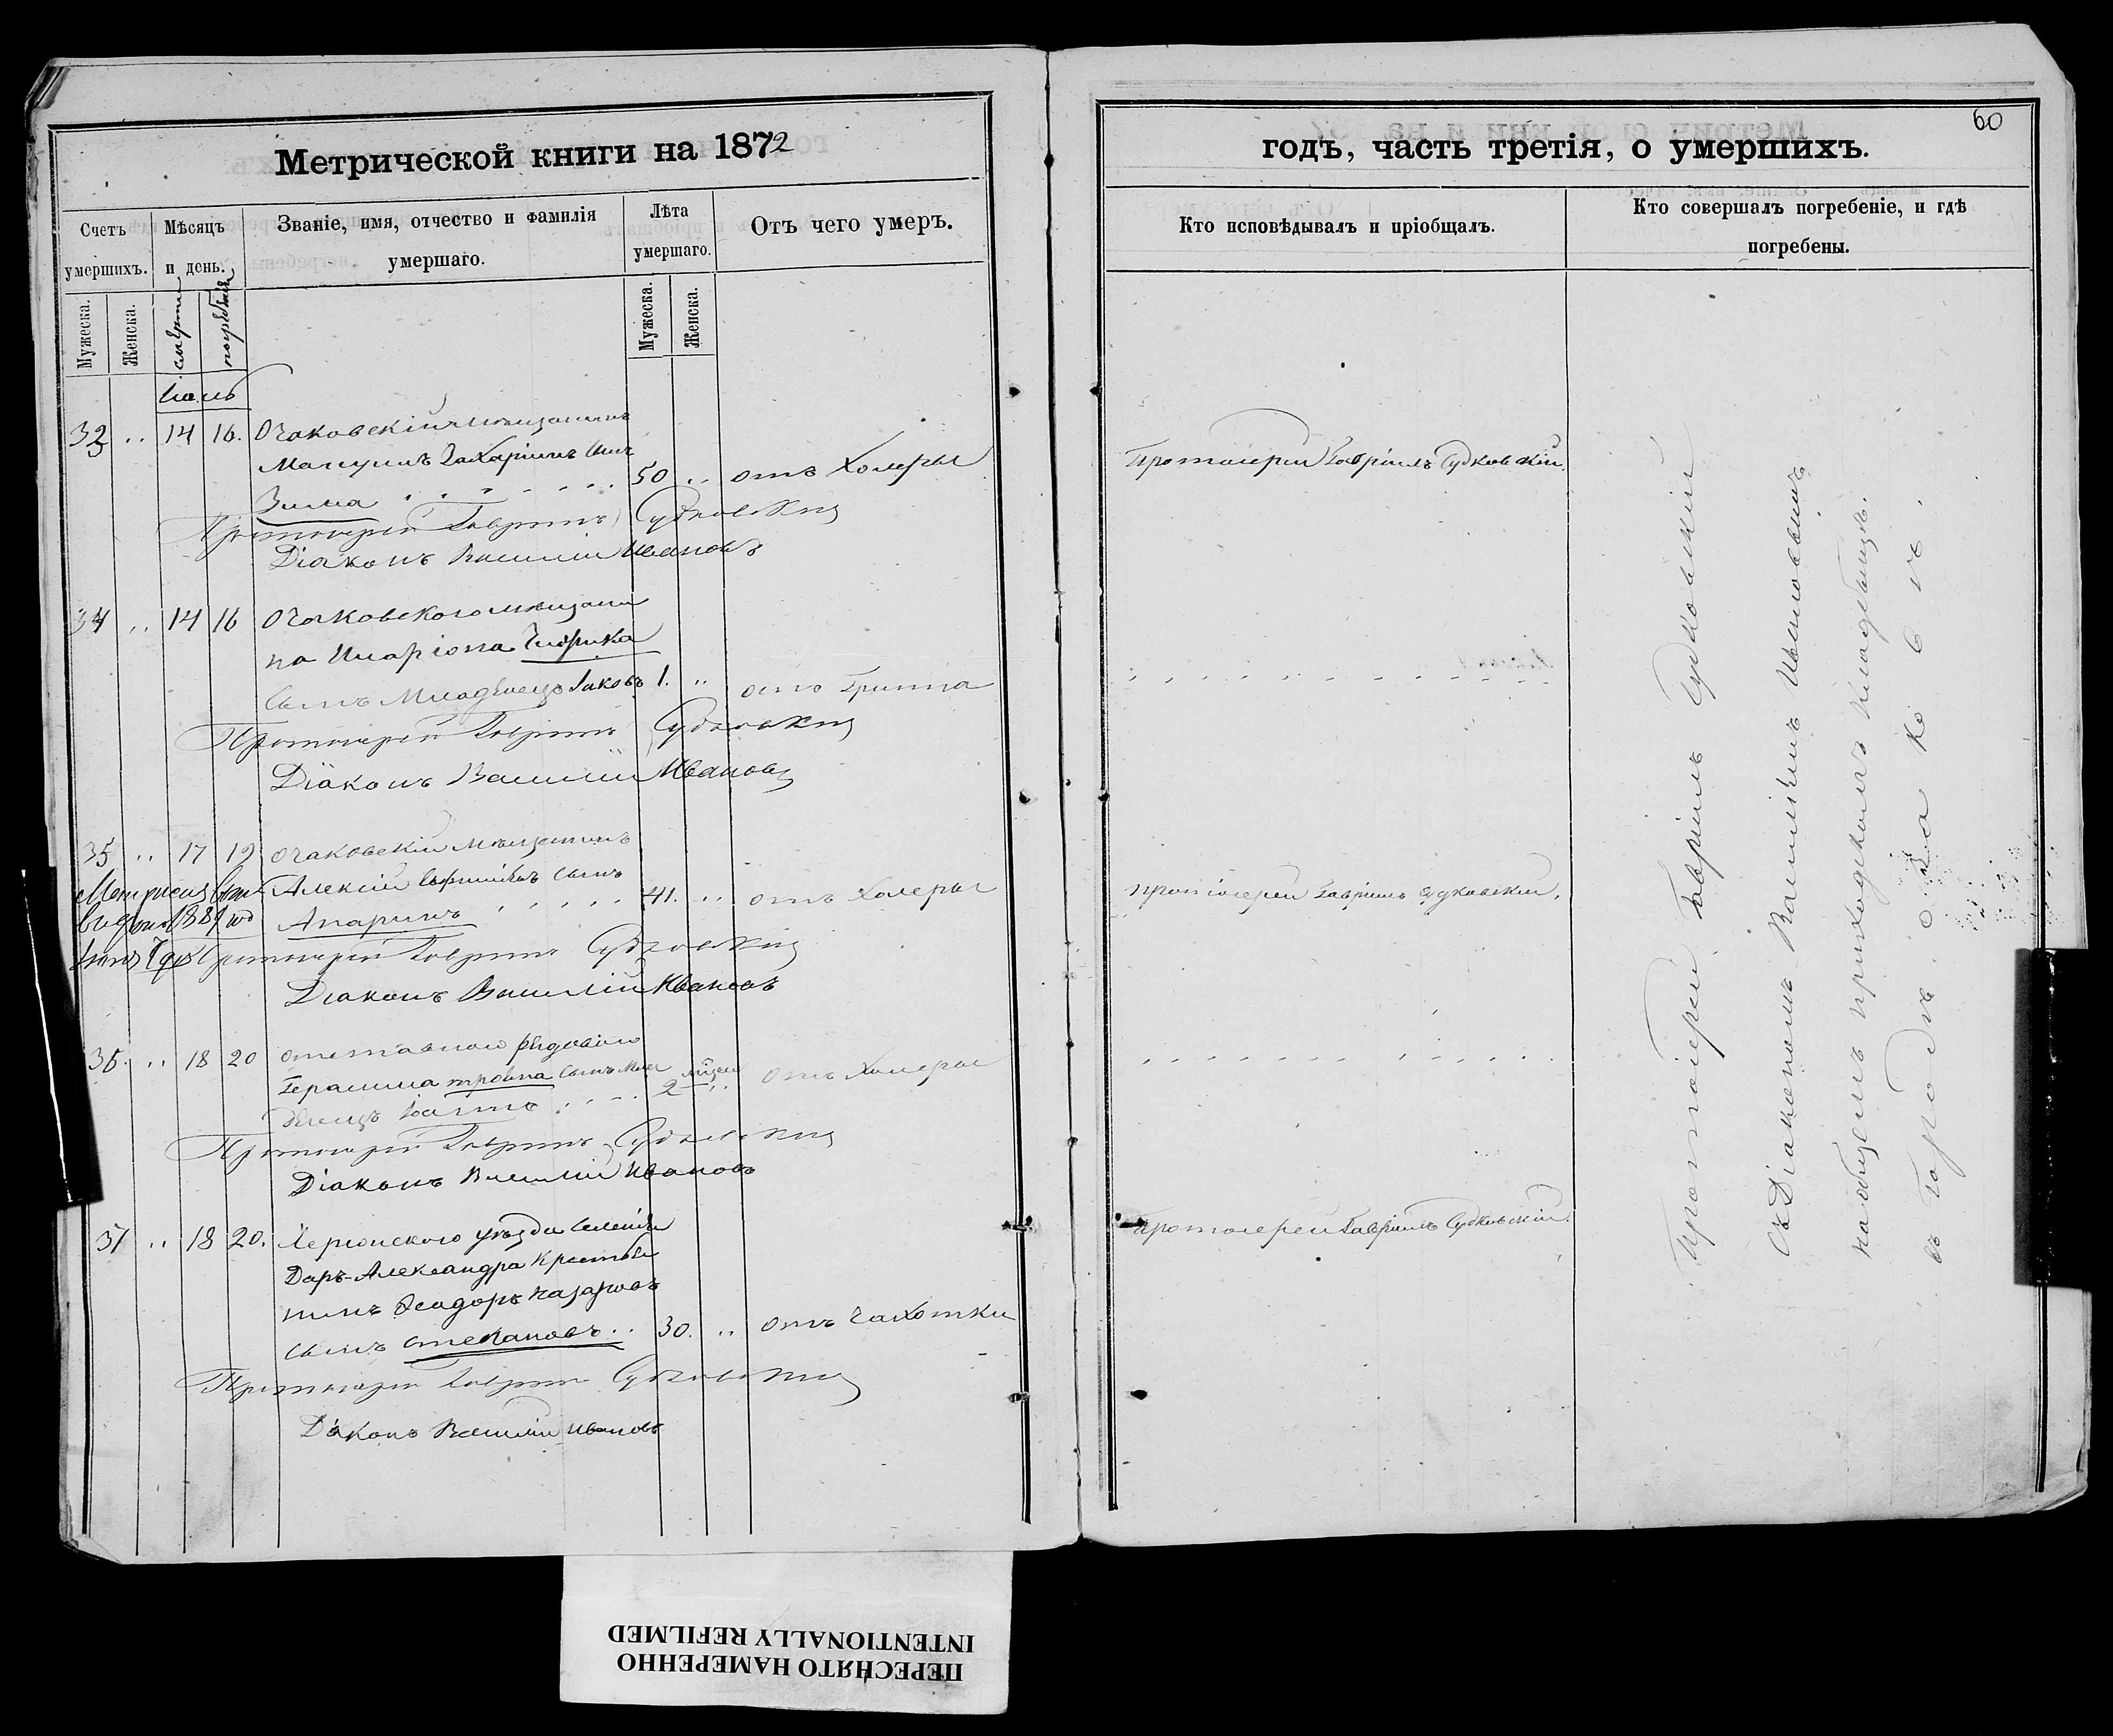 Метрической книги на 1872
Счетъ умершихъ.
Мѣсяцъ и день.
Званіе, имя, отчество и фамилія умершаго.
Лѣта умершаго.
Отъ чего умеръ.
Мужеска.
Женска.
смерти
погребенія
Мужеска.
Женска.
Іюль
32 .. 14 16. Очаковскій мѣщанинъ
Захаріинъ сынъ
Зима 50 .. отъ Холеры
Протоіерей Гавріилъ Судковскій
Діаконъ Василій Ивановъ
34 .. 14 16 Очаковского мѣщани
на Иларіона
сынъ Младенецъ Іаковъ 1. ..
Протоіерей Гавріилъ Судковскій
Діаконъ Василій Ивановъ
35 .. 17 19 очаковскій мѣщанинъ
Алексій сынъ
Апаринъ 41. .. отъ Холеры
Протоіерей Гавріилъ Судковскій
Діаконъ Василій Ивановъ
36. .. 18 20 отставного рядового
Герасима сынъ Мла
денецъ 2 .. отъ Холеры
Протоіерей Гавріилъ Судковскій
Діаконъ Василій Ивановъ
37 .. 18 20. Херсонского уѣзда селенія
Даръ-Александра Крестья
нинъ Ѳеодоръ Назаровъ
сынъ Степановъ .. 30. .. отъ Чахотки
Протоіерей Гавріилъ Судковскій
Діаконъ Василій Ивановъ
60
годъ, часть третія, о умершихъ.
Кто исповѣдывалъ и пріобщалъ.
Кто совершалъ погребеніе, и гдѣ погребены.
Протоіерей Гавріилъ Судковскій.
Протоіерей Гавріилъ Судковскій.
Протоіерей Гавріилъ Судковскій.
Протоіерей Гавріилъ Судковскій
съ Діакономъ Василіемъ Ивановымъ
на общемъ приходскомъ кладбищѣ.
въ Городѣ Очаковѣ.
ПЕРЕСНЯТО НАМЕРЕННО
INTENTIONALLY REFILMED